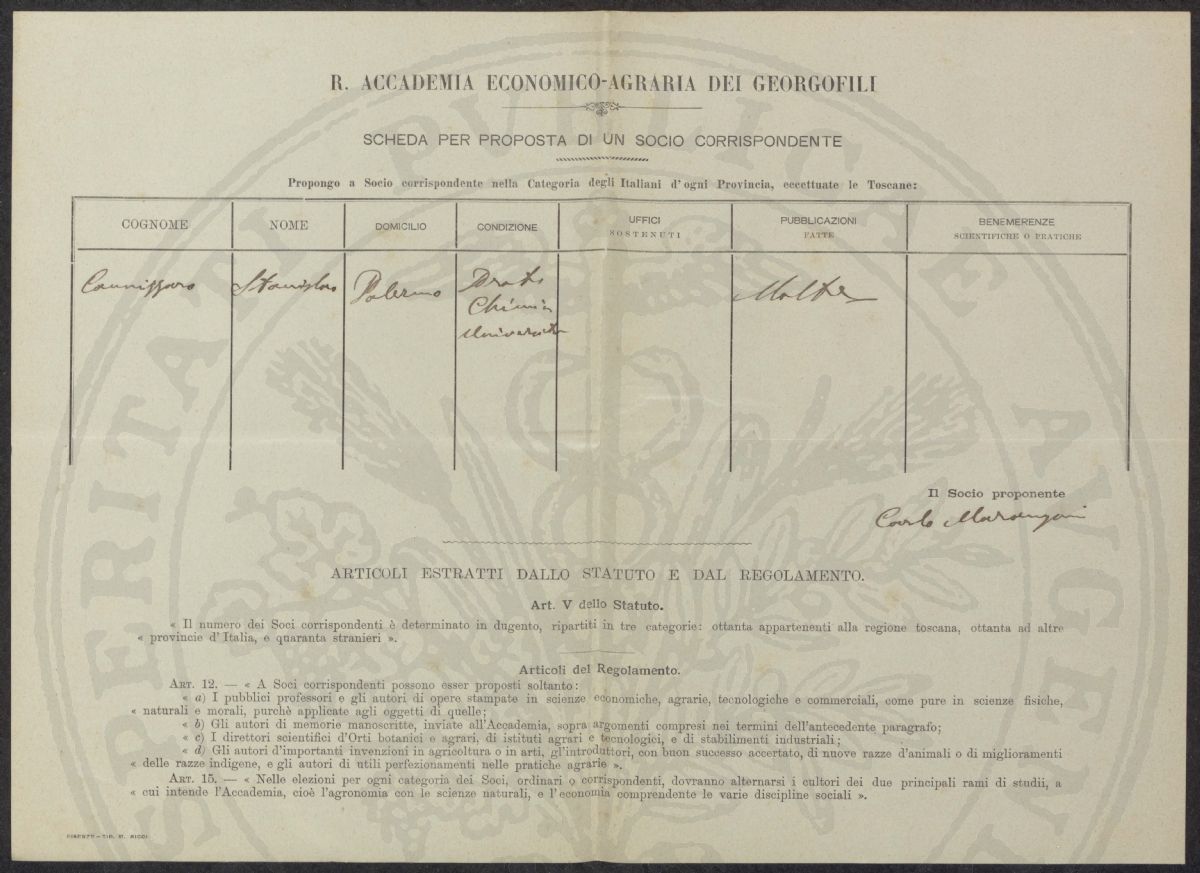 R. ACCADEMIA ECONOMICO-AGRARIA DEI GEORGOFILI
SCHEDA PER PROPOSTA DI UN SOCIO CORRISPONDENTE
Propongo a Socio corrispondente nella Categoria degli Italiani d'ogni Provincia, eccettuate le Toscane:
COGNOME NOME DOMICILIO CONDIZIONE UFFICI SOSTENUTI PUBBLICAZIONI FATTE BENEMERENZE SCIENTIFICHE O PRATICHE
Cannizzaro Stanislao Palermo Molte
Chimica
Università
Il Socio proponente
Carlo Marangoni
ARTICOLI ESTRATTI DALLO STATUTO E DAL REGOLAMENTO.
Art. V dello Statuto.
« Il numero dei Soci corrispondenti è determinato in dugento, ripartiti in tre categorie: ottanta appartenenti alla regione toscana, ottanta ad altre
« provincie d'Italia, e quaranta stranieri ».
Articoli del Regolamento.
ART. 12. — « A Soci corrispondenti possono esser proposti soltanto:
« a) I pubblici professori e gli autori di opere stampate in scienze economiche, agrarie, tecnologiche e commerciali, come pure in scienze fisiche,
« naturali e morali, purchè applicate agli oggetti di quelle;
« b) Gli autori di memorie manoscritte, inviate all'Accademia, sopra argomenti compresi nei termini dell'antecedente paragrafo;
« c) I direttori scientifici d'Orti botanici e agrari, di istituti agrari e tecnologici, e di stabilimenti industriali;
« d) Gli autori d'importanti invenzioni in agricoltura o in arti, gl'introduttori, con buon successo accertato, di nuove razze d'animali o di miglioramenti
« delle razze indigene, e gli autori di utili perfezionamenti nelle pratiche agrarie ».
ART. 15. — « Nelle elezioni per ogni categoria dei Soci, ordinari o corrispondenti, dovranno alternarsi i cultori dei due principali rami di studii, a
« cui intende l'Accademia, cioè l'agronomia con le scienze naturali, e l'economia comprendente le varie discipline sociali ».
FIRENZE - TIP. M. RICCI
PROSPERITATI PVBLICAE AVGENDAE